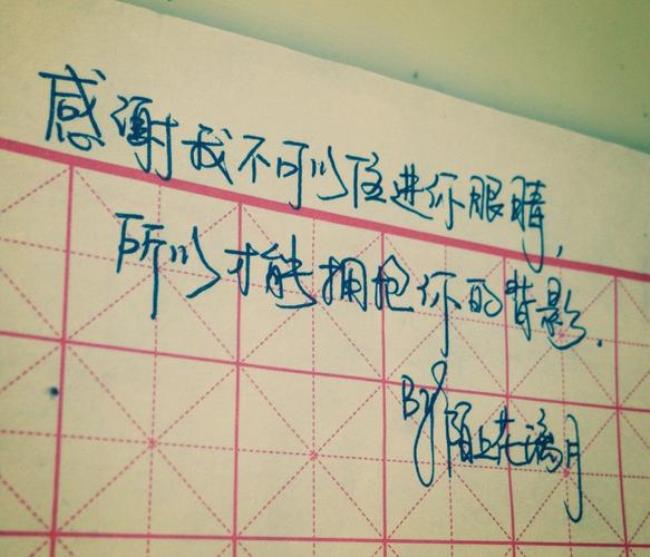 感谢我不可以住进你眼睛,
所以才能拥抱你的背影.
By 陌上花漓月